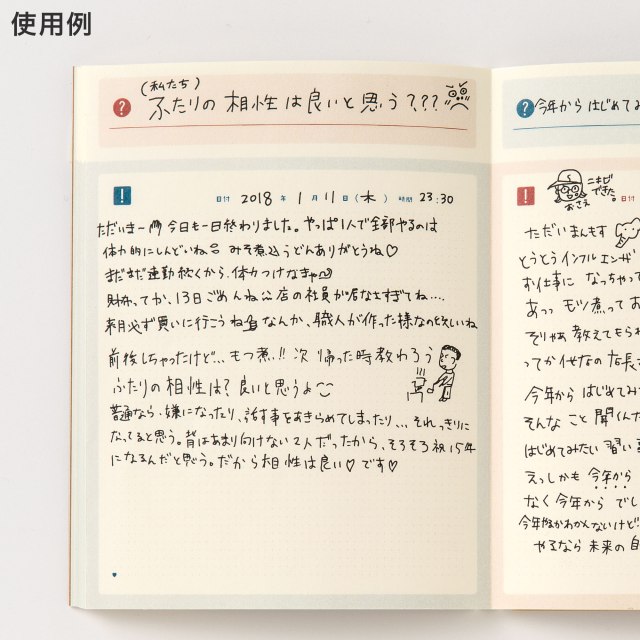 使用例
(私たち)
ふたりの相性は良いと思う???
日付 2018年 1月 11日(木) 時間 23:30
ただいまー 今日も一日終わりました。やっぱ1人で全部やるのは
体力的にしんどいね みそ煮込うどんありがとうね♡
まだまだ連勤続くから、体力つけなきゃ
財布ってか、13日ごめんね 店の社員が居なさすぎてね....
来月必ず買いに行こうね なんか、職人が作った様なのとえいね
前後しちゃったけど... もつ煮!! 次帰った時教わろう
ふたりの相性は? 良いと思うよ
普通なら、嫌になったり、話す事をあきらめてしまったり... それっきりに
なってると思う。背はあまり向けない2人だったから、そろそろ祝15年
になるんだと思う。だから相性は良い♡です♡
今年からはじめてみ
ニキビできた。
おさえ
日付
ただいまんもす
とうとうインフルエンザ
お仕事に なっちゃって
あっっ モツ煮って お
ぞりゃあ 教えてもら
ってか 任せなの 店長
今年から はじめてみ
そんな こと 聞くんだ
はじめてみたい 習い
えっしかも 今年から
なく今年から でし
今年やるかわかんないけど
やるなら 未来の自